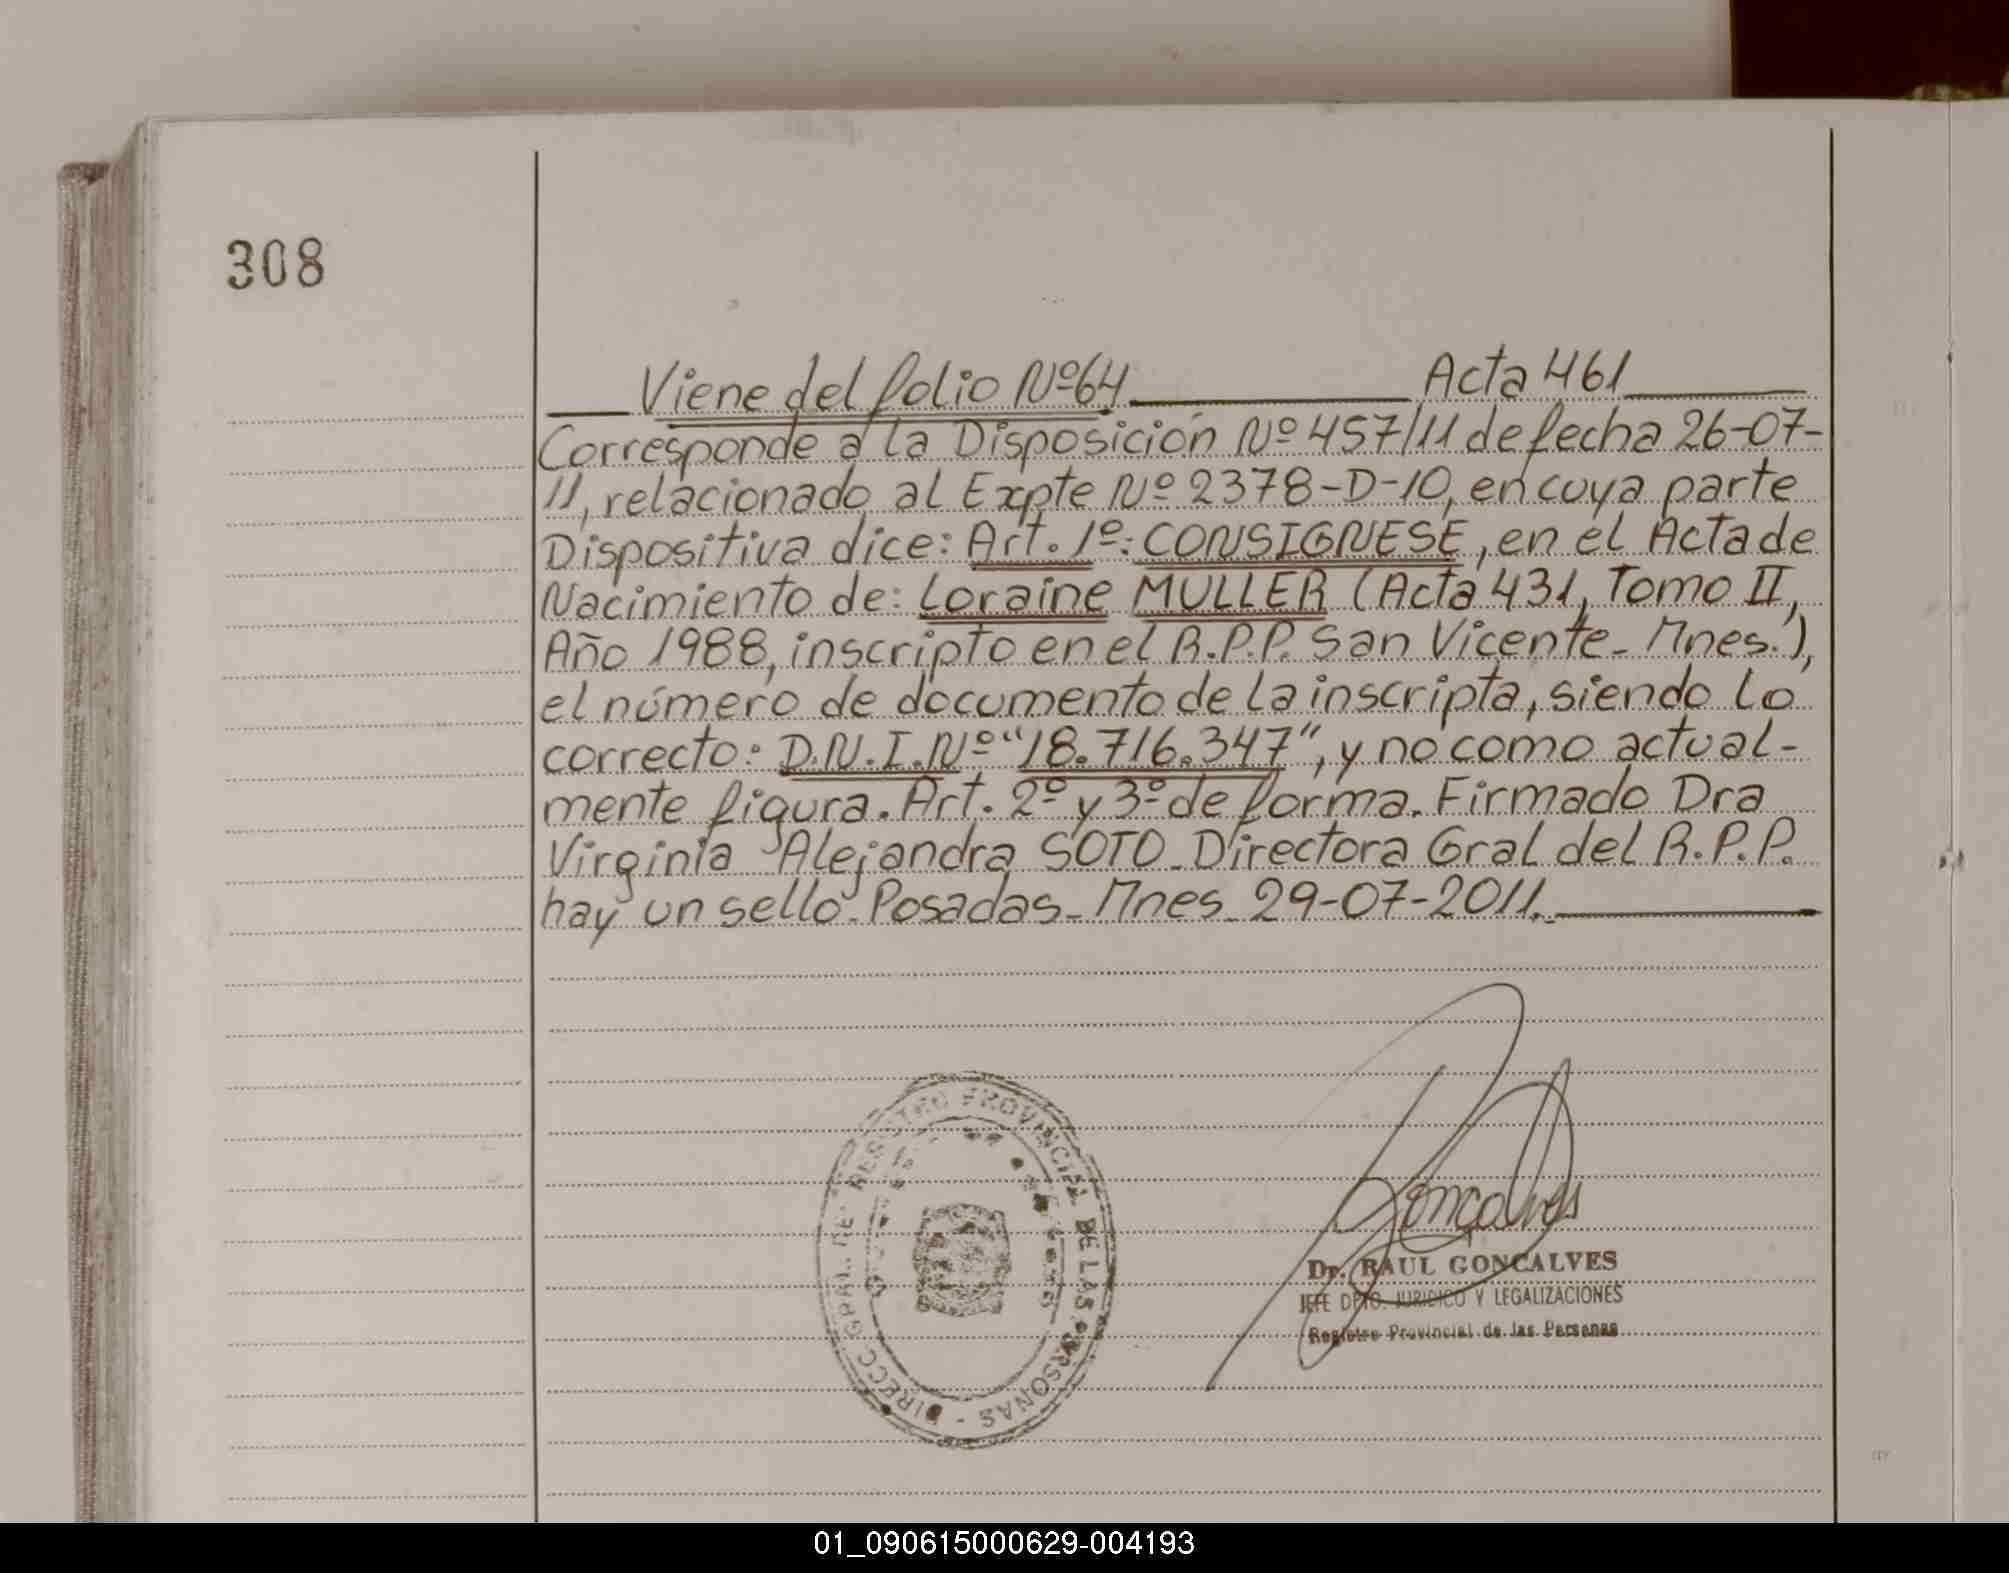 308
Viene del folio Nº64 Acta 461
Corresponde a la Disposición Nº 457/11 de fecha 26-07-
11, relacionado al Expte Nº 2378-D-10, en cuya parte
Dispositiva dice: Art. 1º: CONSIGNESE, en el Acta de
Nacimiento de: Loraine MULLER (Acta 431, Tomo II,
Año 1988, inscripto en el R.P.P. San Vicente - Mnes.),
el número de documento de la inscripta, siendo lo
correcto: D.N.I. Nº "18.716.347", y no como actual-
mente figura. Art. 2º y 3º de forma. Firmado Dra
Virginia Alejandra SOTO - Directora Gral del R.P.P.
hay un sello - Posadas - Mnes - 29-07-2011.
DIRECC. GRAL. DE REGISTRO PROVINCIAL DE LAS PERSONAS -
Gonçalves
Dr. RAUL GONCALVES
JEFE DPTO. JURIDICO Y LEGALIZACIONES
Registro Provincial de las Personas
01_090615000629-004193